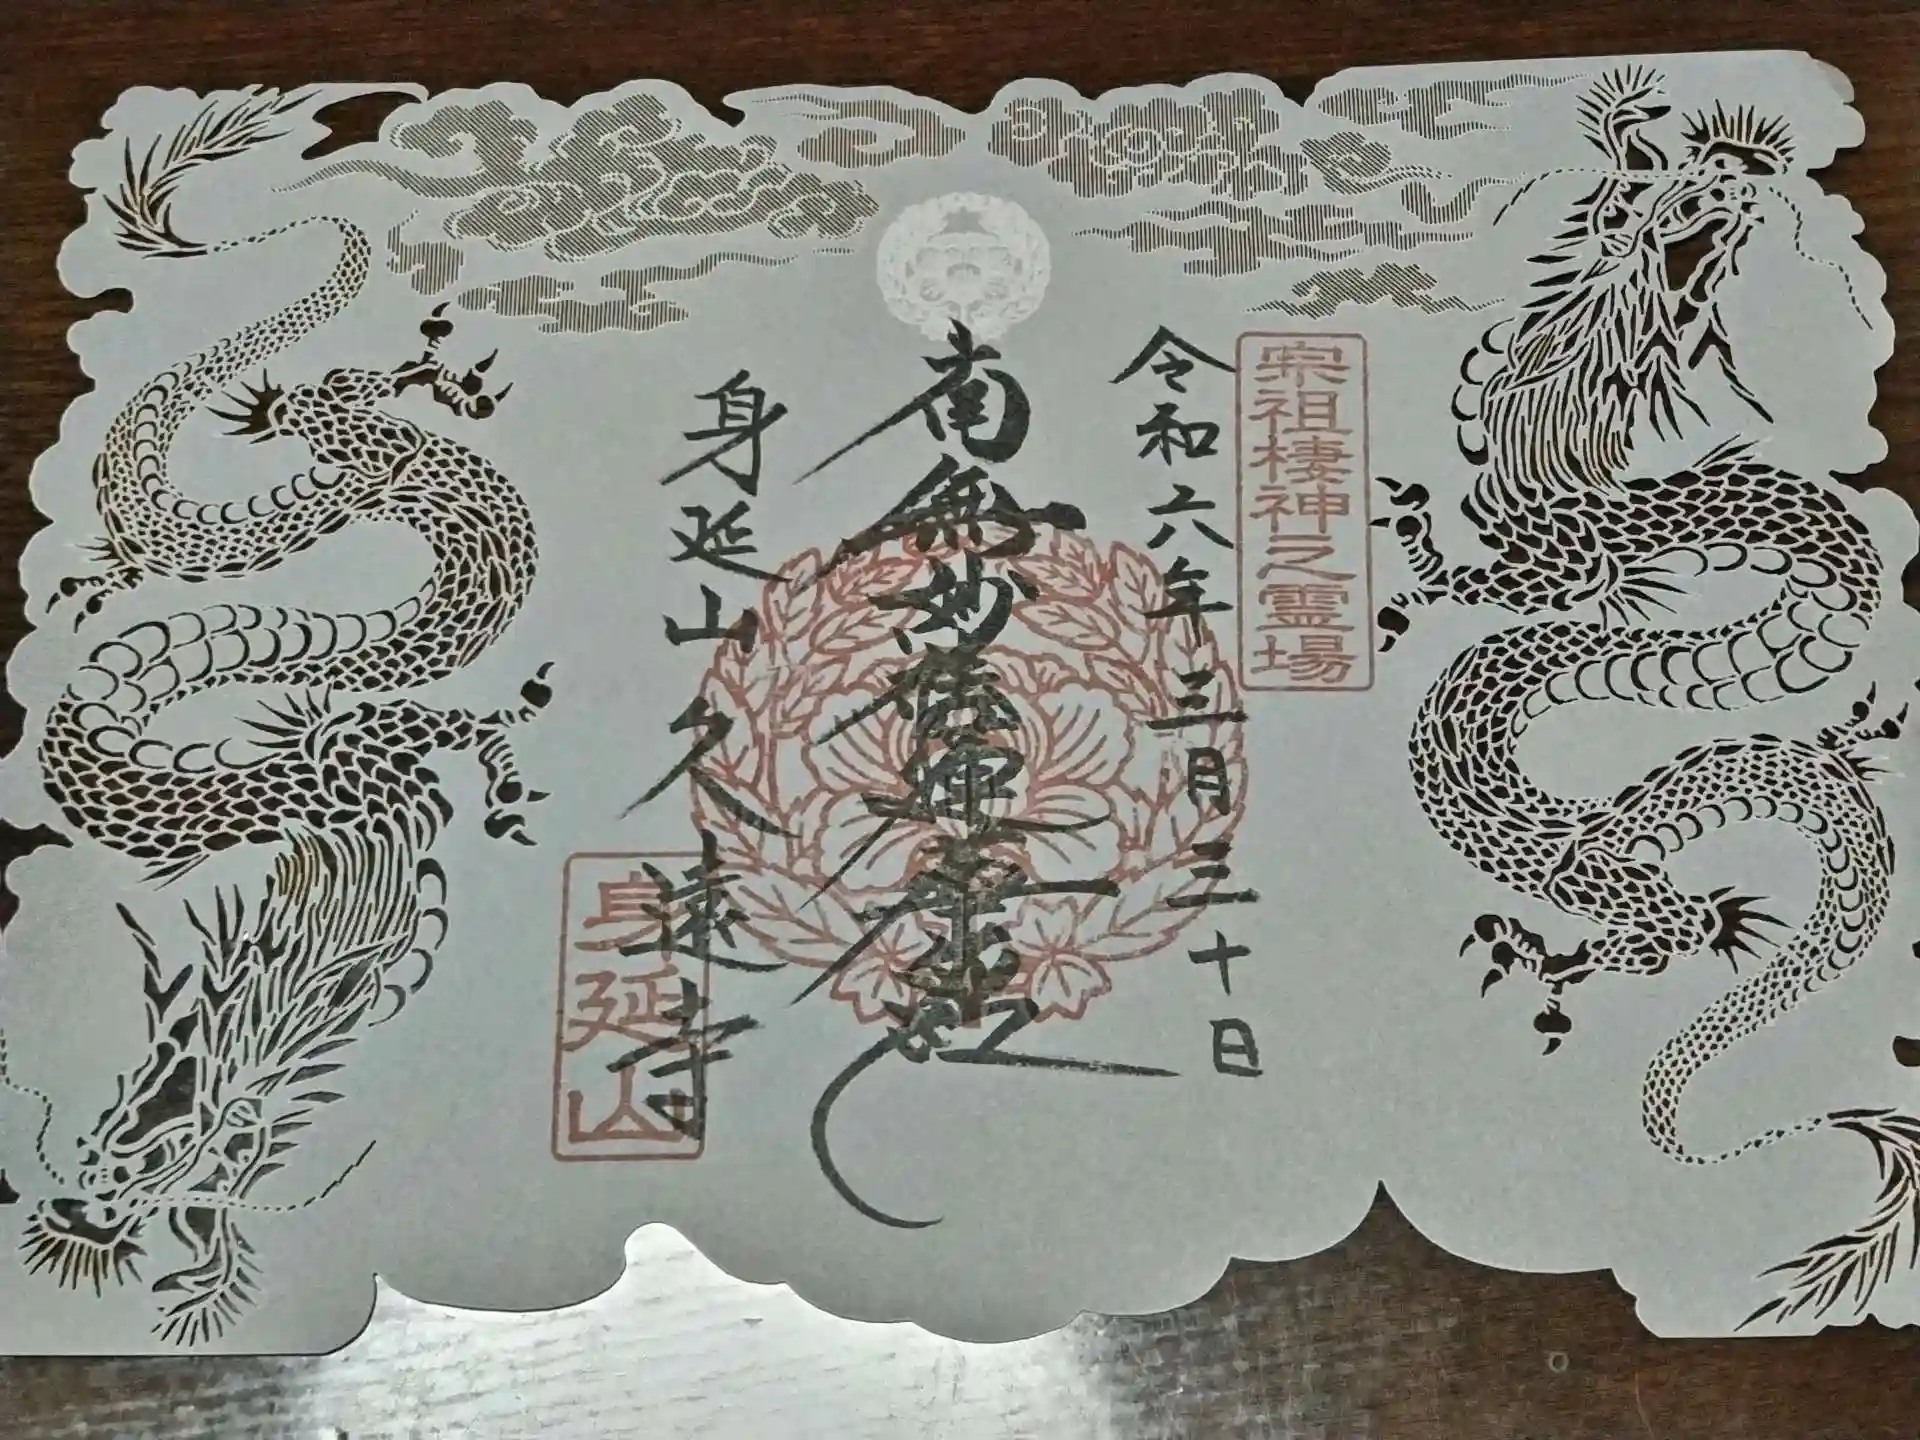 宗祖棲神之霊場
令和六年三月三十日
南無妙法蓮華経
身延山久遠寺
身延山